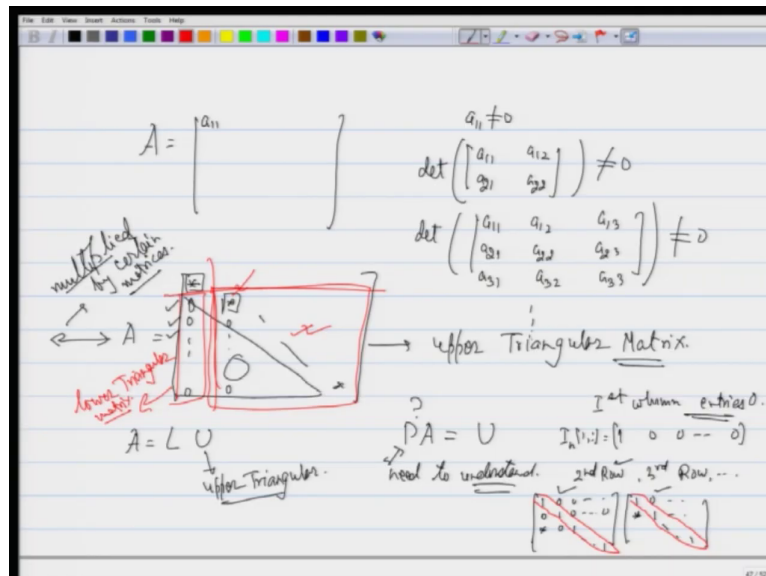 File Edit View Insert Actions Tools Help
B I
A = [ a11 ]
a11 ≠ 0
det ( [ a11 a12
a21 a22 ] ) ≠ 0
det ( [ a11 a12 a13
a21 a22 a23
a31 a32 a33 ] ) ≠ 0
⋮
multiplied
by certain
matrices.
↔ A =
*
0 *
0 0
0
0 0 *
→ upper Triangular Matrix.
lower Triangular
matrix
A = L U
upper Triangular.
?
PA = U
need to understand.
Ist column entries 0.
In[1,:] = [1 0 0 -- 0]
2nd Row, 3rd Row, ...
1 0 0 ...
0 1 0 ... 0
* 0 1
1
1 0 ...
* 1 ...
1